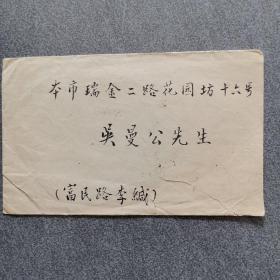 本市瑞金二路花园坊十六号
吴曼公先生
(富民路李缄)